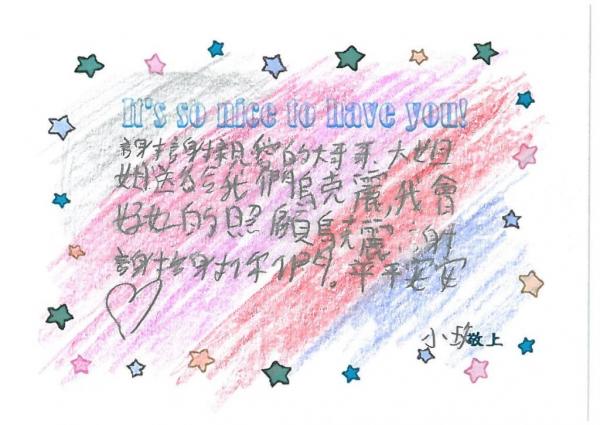 It's so nice to have you!
謝謝親愛的大哥哥、大姐
姐送給我們烏克麗,我會
好好的照顧烏克麗,謝
謝謝你們。平平安安
小玫敬上